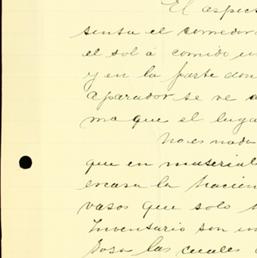 El aspec
senta el comedor
el sol a comido
y en la parte don
aparador se ve
ma que el luga
No es nada
que en material
encasa la hacien
vasos que solo
Inventario son
Dosa las cuales